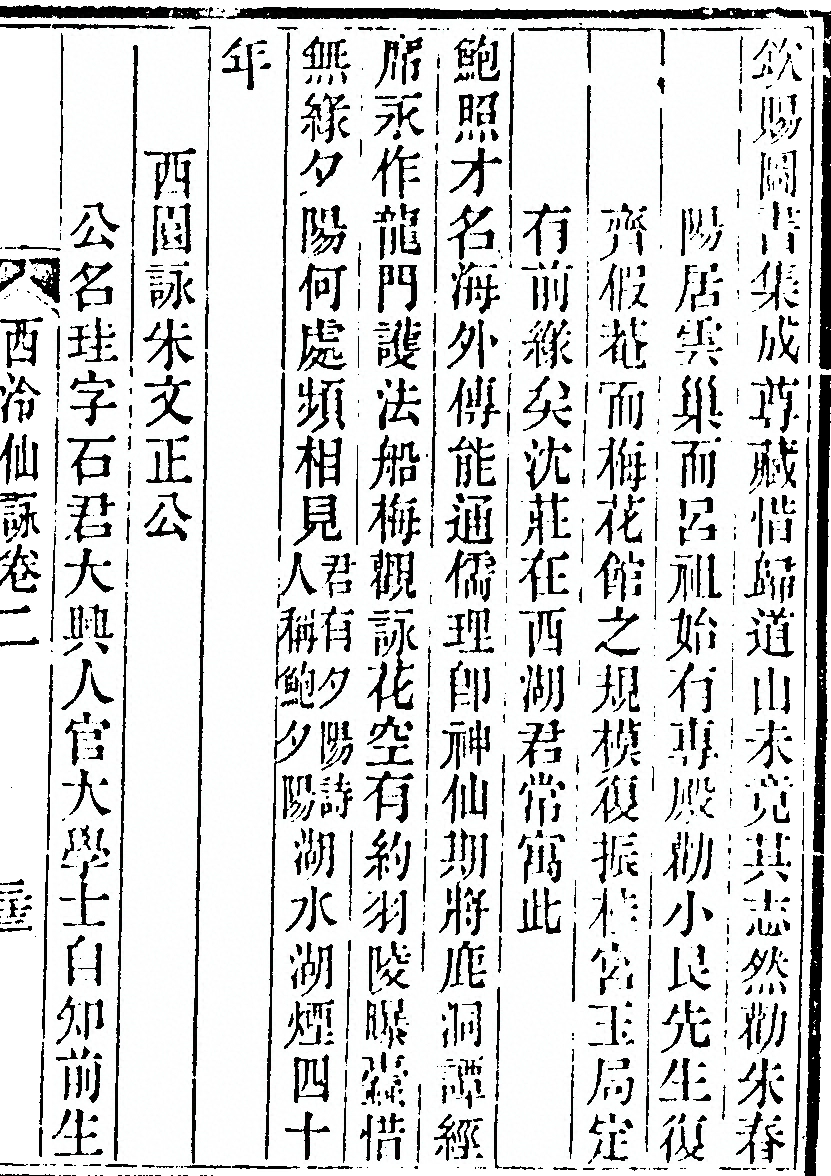 欽賜圖書集成尊藏惜歸道山未竟其志然勸朱春
陽居雲巢而呂祖始有專殿勸小民先生復
齊假菴而梅花館之規模復振桂宮玉局定
有前緣矣沈莊在西湖君常寓此
鮑照才名海外傳能通儒理卽神仙期將鹿洞譚經
席永作龍門護法船梅觀詠花空有約羽陵曝蠹惜
無緣夕陽何處頻相見君有夕陽詩人稱鮑夕陽湖水湖煙四十
年
西園詠朱文正公
公名珪字石君大興人官大學士自知前生
西泠仙詠卷二